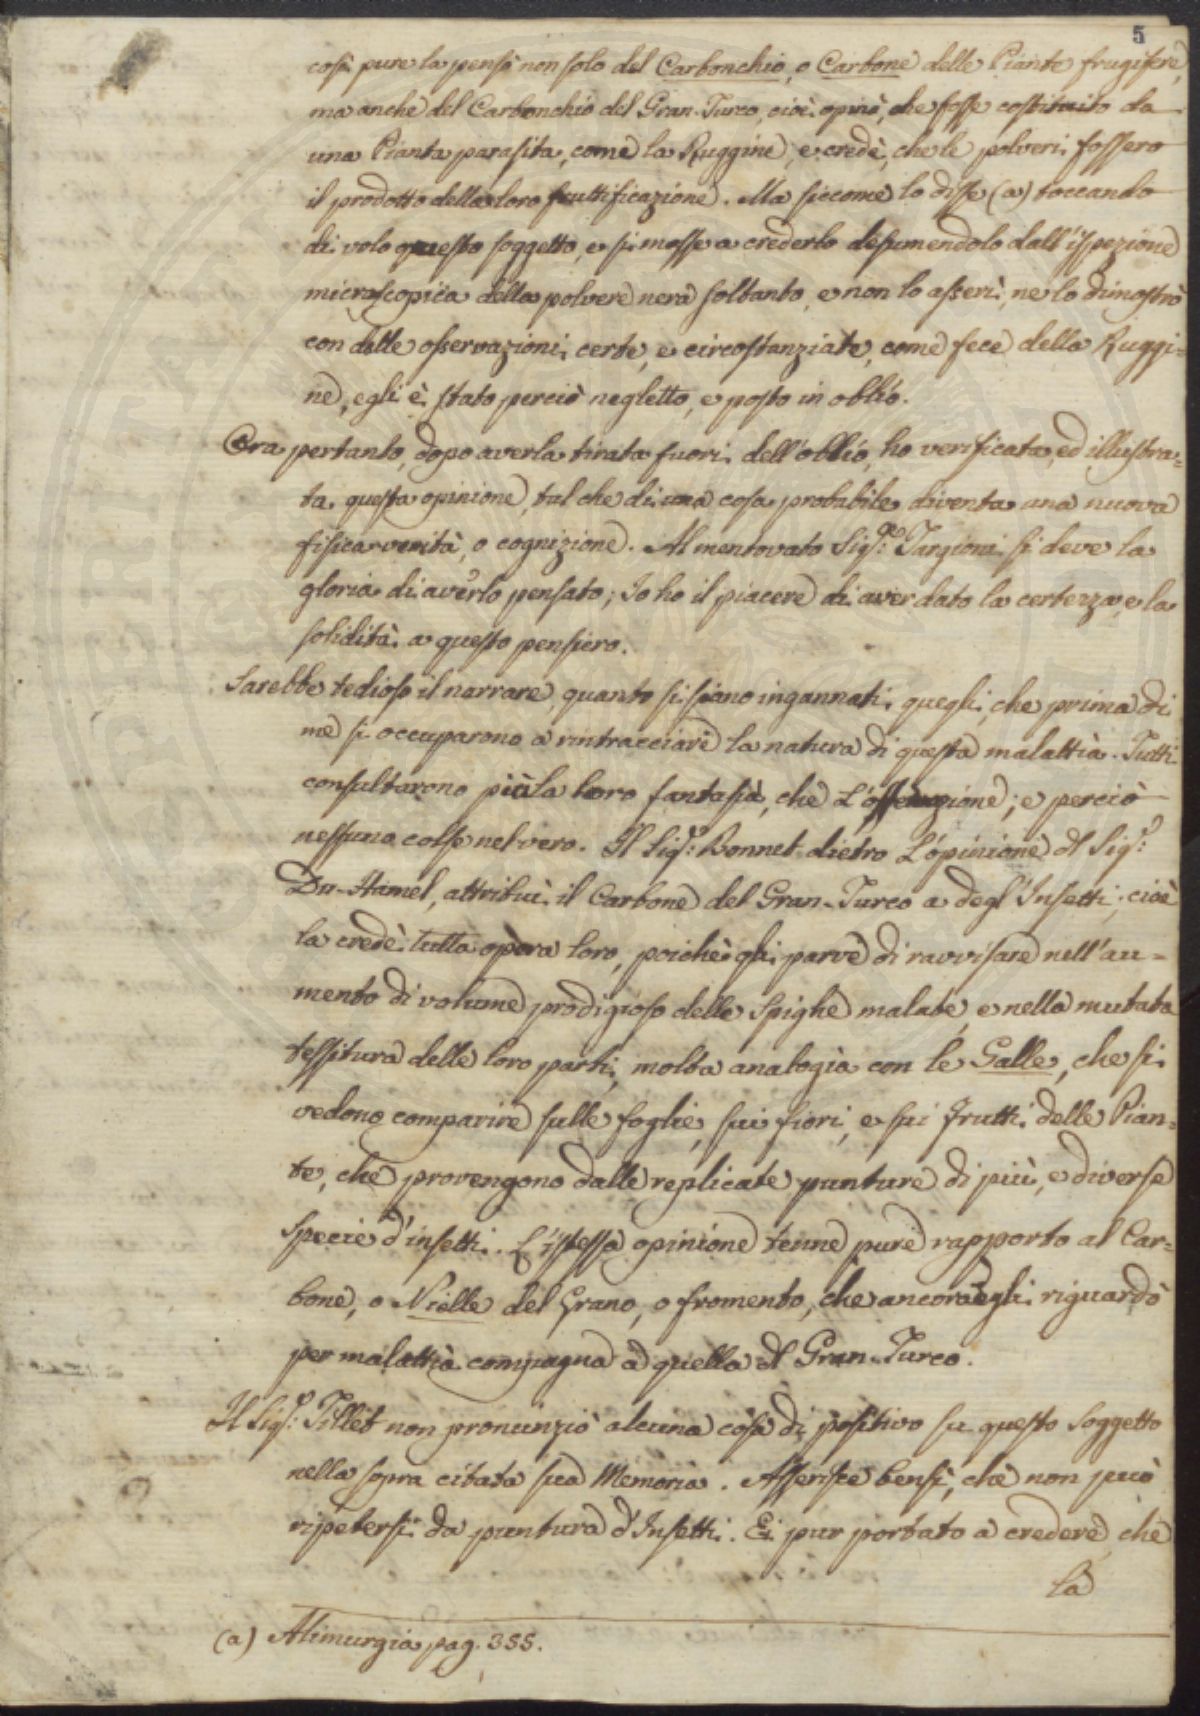 5
così pure la pensò non solo del Carbonchio, o Carbone delle Piante frugifere,
ma anche del Carbonchio del Gran-Turco, cioè opinò, che fosse costituito da
una Pianta parasita, come la Ruggine, e credè, che le polveri fossero
il prodotto della loro fruttificazione. Ma siccome lo disse (a) toccando
di volo questo soggetto, e si mosse a crederlo desumendolo dall'ispezione
microscopica della polvere nera soltanto, e non lo asserì, ne lo dimostrò
con delle osservazioni certe, e circostanziate, come fece della Ruggi=
ne, egli è stato perciò negletto, e posto in oblio.
Ora pertanto, dopo averla tirata fuori dell'oblio, ho verificata, ed illustra=
ta questa opinione, tal che di una cosa probabile diventa una nuova
fisica verità, o cognizione. Al mentovato Sigre: Targioni si deve la
gloria di averlo pensato; Io ho il piacere di aver dato la certezza, e la
solidità a questo pensiero.
Sarebbe tedioso il narrare, quanto si siano ingannati quegli, che prima di
me si occuparono a rintracciare la natura di questa malattia. Tutti
consultarono più la loro fantasia, che L'osservazione; e perciò
nessuno colse nel vero. Il Sigr: Bonnet dietro L'opinione del Sigr:
Du-Hamel, attribuì il Carbone del Gran-Turco a degl'Insetti; cioè
la credè tutta opera loro, poichè gli parve di ravvisare nell'au=
mento di volume prodigioso delle Spighe malate, e nella mutata
tessitura delle loro parti, molta analogia con le Galle, che si
vedono comparire sulle foglie, sui fiori, e sui frutti delle Pian=
te, che provengono dalle replicate punture di più, e diverse
Specie d'insetti. L'istessa opinione tenne pure rapporto al Car=
bone, o Nielle del Grano, o fromento, che ancora egli riguardò
per malattia compagna a quella del Gran-Turco.
Il Sigr: Tillet non pronunziò alcuna cosa di positivo su questo Soggetto
nella sopra citata sua Memoria. Asserisce bensì, che non può
ripetersi da puntura d'Insetti. Ei pur portato a credere, che
la
(a) Alimurgia pag. 355.